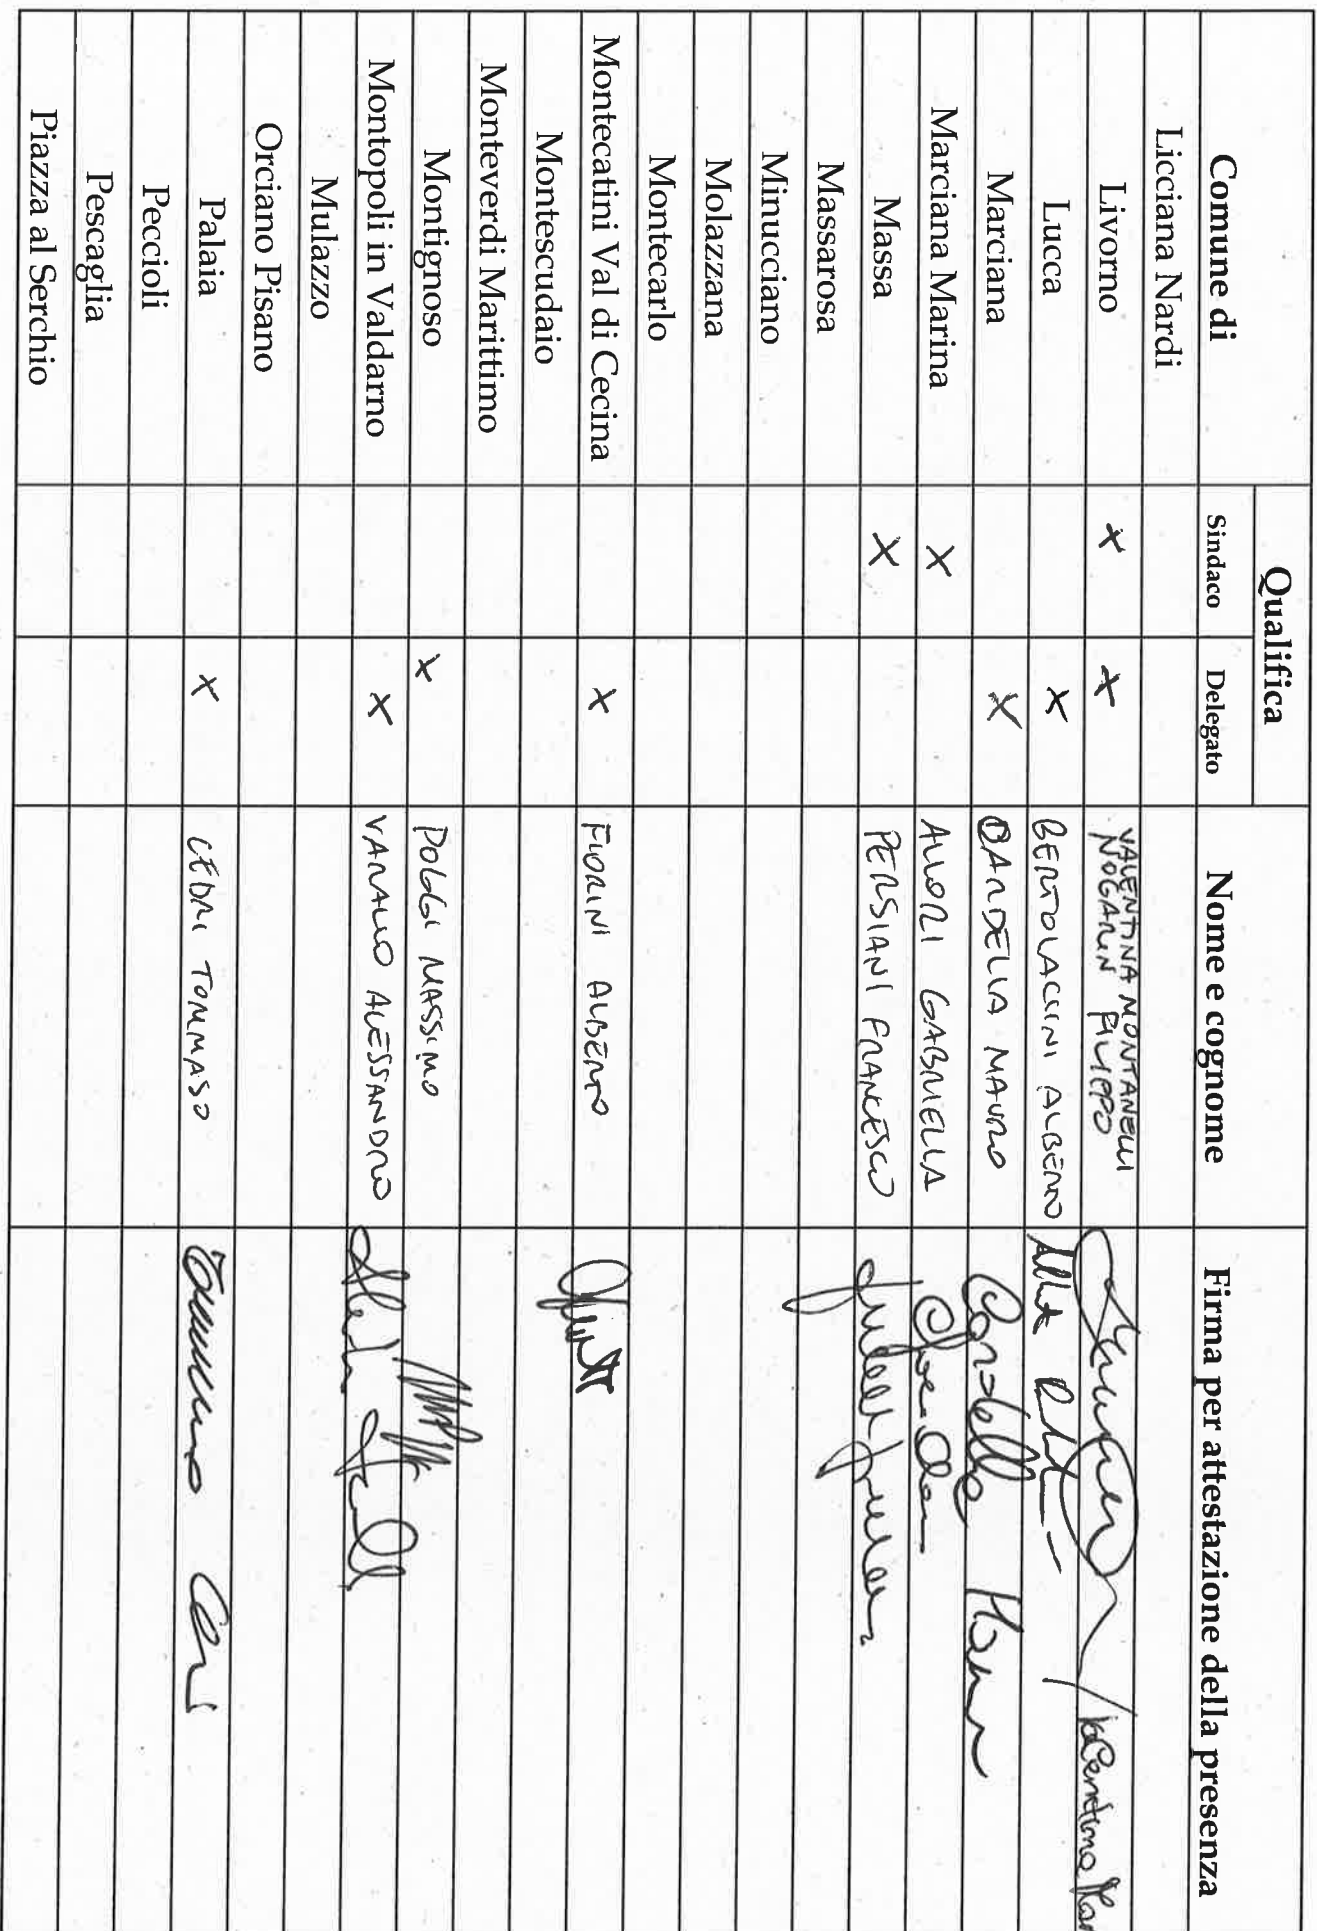 Comune di Qualifica Nome e cognome Firma per attestazione della presenza
Sindaco Delegato
Licciana Nardi
Livorno x x VALENTINA MONTANELLI
NOGARIN FILIPPO
Lucca x BERTOLACCINI ALBERTO
Marciana x BARDELLA MAURO
Marciana Marina x ALLORI GABRIELLA
Massa x PERSIANI FRANCESCO
Massarosa
Minucciano
Molazzana
Montecarlo
Montecatini Val di Cecina x FIORINI ALBERTO
Montescudaio
Monteverdi Marittimo
Montignoso x POGGI MASSIMO
Montopoli in Valdarno x VARALLO ALESSANDRO
Mulazzo
Orciano Pisano
Palaia x CEDRI TOMMASO Tommaso
Peccioli
Pescaglia
Piazza al Serchio